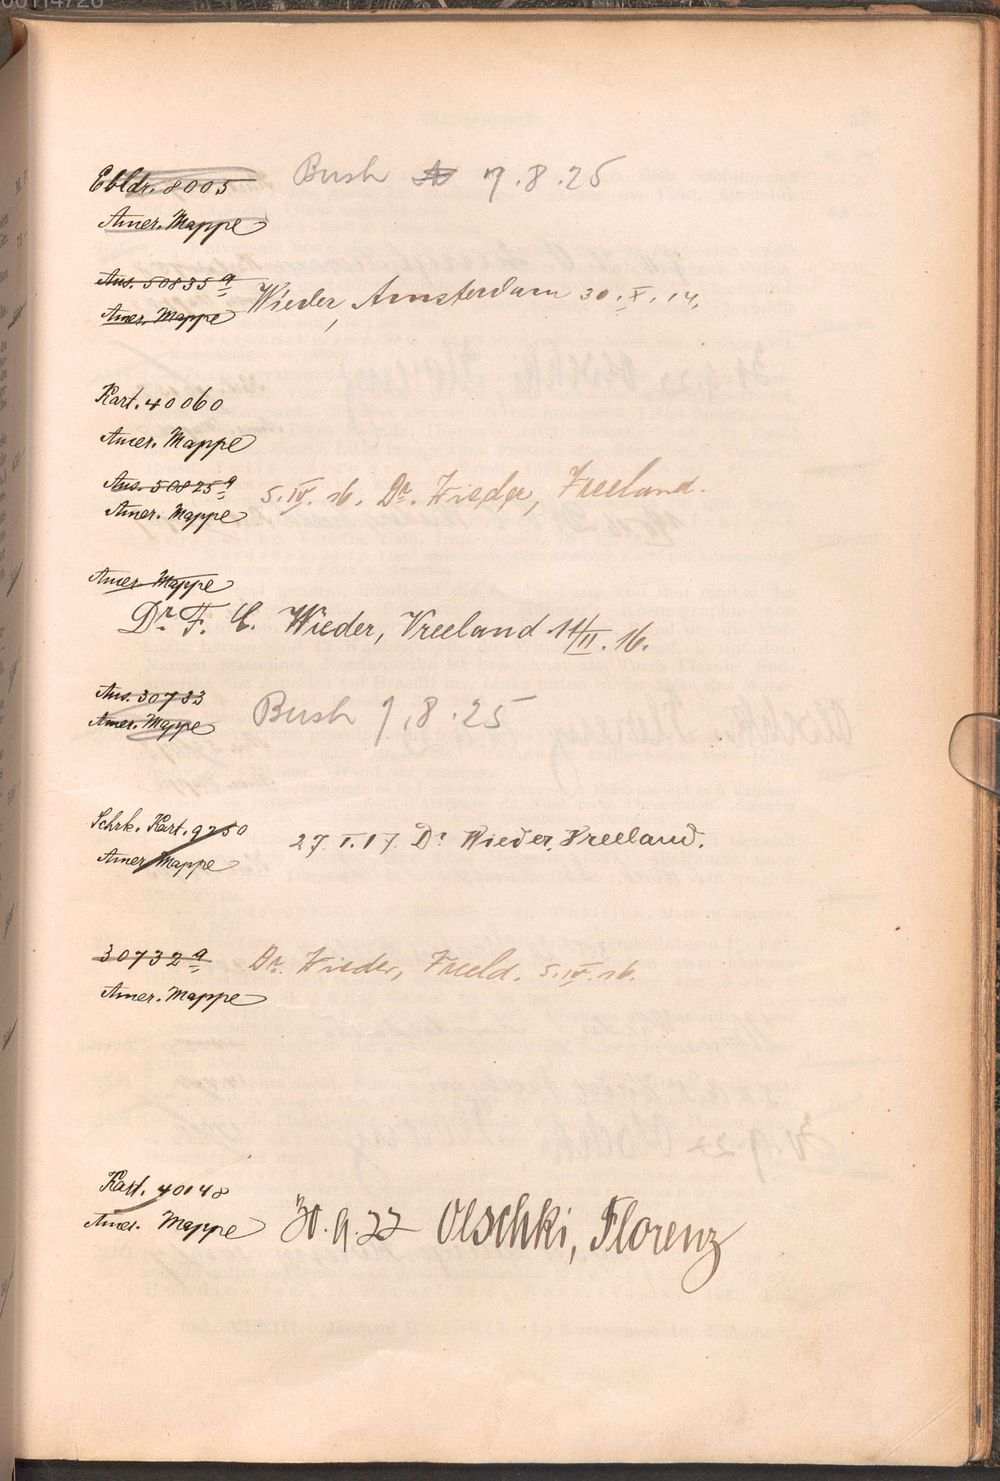 Ebldr. 8005 Bush 7.8.25
Amer. Mappe
Aus. 50835 a
Wieder, Amsterdam 30.X.14.
Amer. Mappe
Kart. 40060
Amer. Mappe
Aus. 50825 a
5.IV.16. Dr. Wieder, Vreeland.
Amer. Mappe
Amer. Mappe
Dr. F. C. Wieder, Vreeland 11/II. 16.
Aus. 30733
Amer. Mappe Bush 7.8.25
Schrk. Kart. 9250
27.I.17. Dr Wieder, Vreeland.
Amer. Mappe
30732 a Dr. Wieder, Vreeld. 5.IV.16.
Amer. Mappe
Kart. 40148
Amer. Mappe 30.9.22 Olschki, Florenz